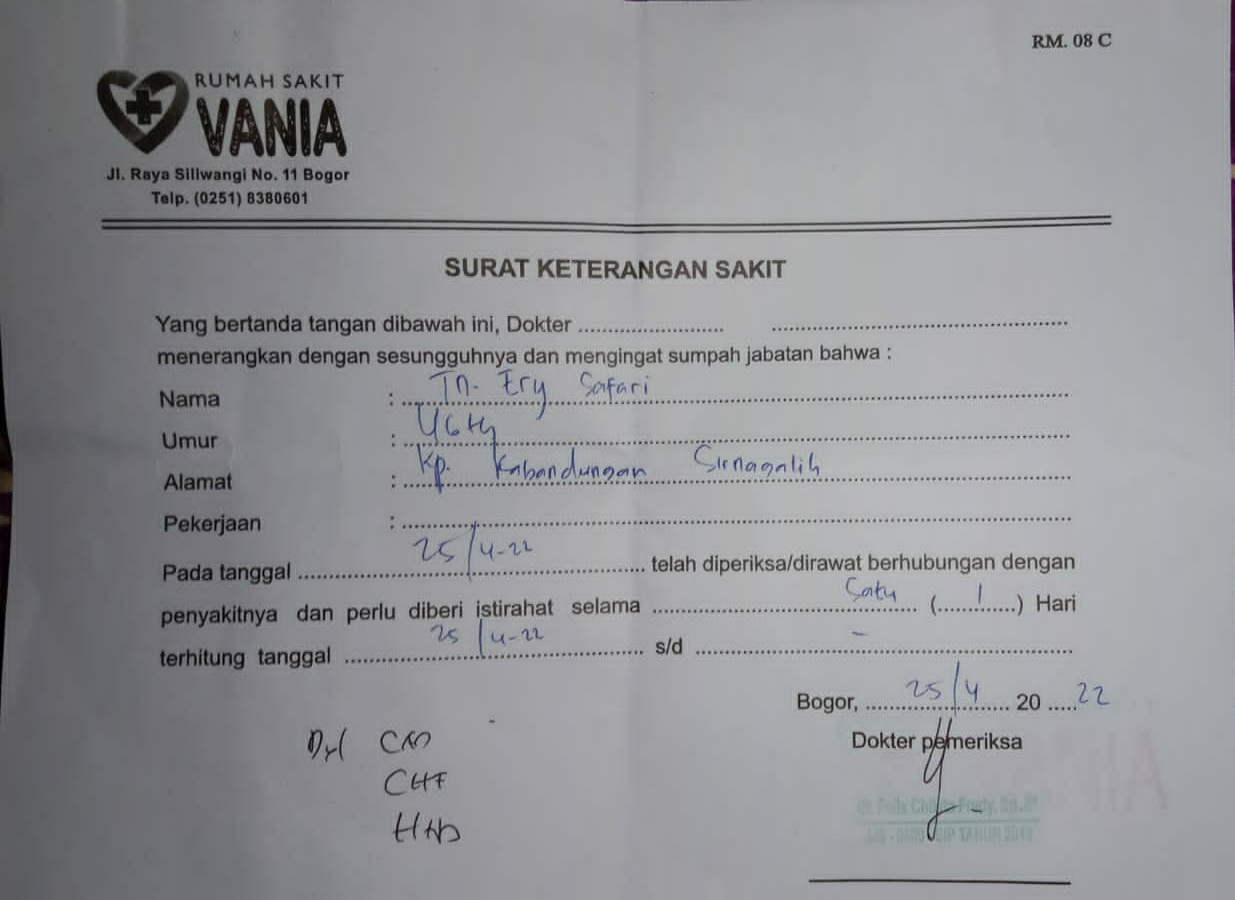 RM. 08 C
RUMAH SAKIT
VANIA
Jl. Raya Siliwangi No. 11 Bogor
Telp. (0251) 8380601
SURAT KETERANGAN SAKIT
Yang bertanda tangan dibawah ini, Dokter ........................ ..................................................
menerangkan dengan sesungguhnya dan mengingat sumpah jabatan bahwa :
Nama : Tn. Ery Safari
Umur : 46 th
Alamat : Kp. Kabandungan Sirnagalih
Pekerjaan : ..................................................
Pada tanggal 25/4-22 telah diperiksa/dirawat berhubungan dengan
penyakitnya dan perlu diberi istirahat selama Satu (1) Hari
terhitung tanggal 25/4-22 s/d -
Bogor, 25/4 20 22
Dokter pemeriksa
CAD
CHF
HHD